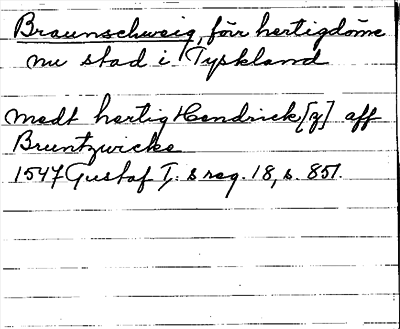 Braunschweig, förr hertigdöme
nu stad i Tyskland
medt hertig Hendrick[z] aff
Bruntzwicke
1547 Gustaf I:s reg. 18, s. 851.